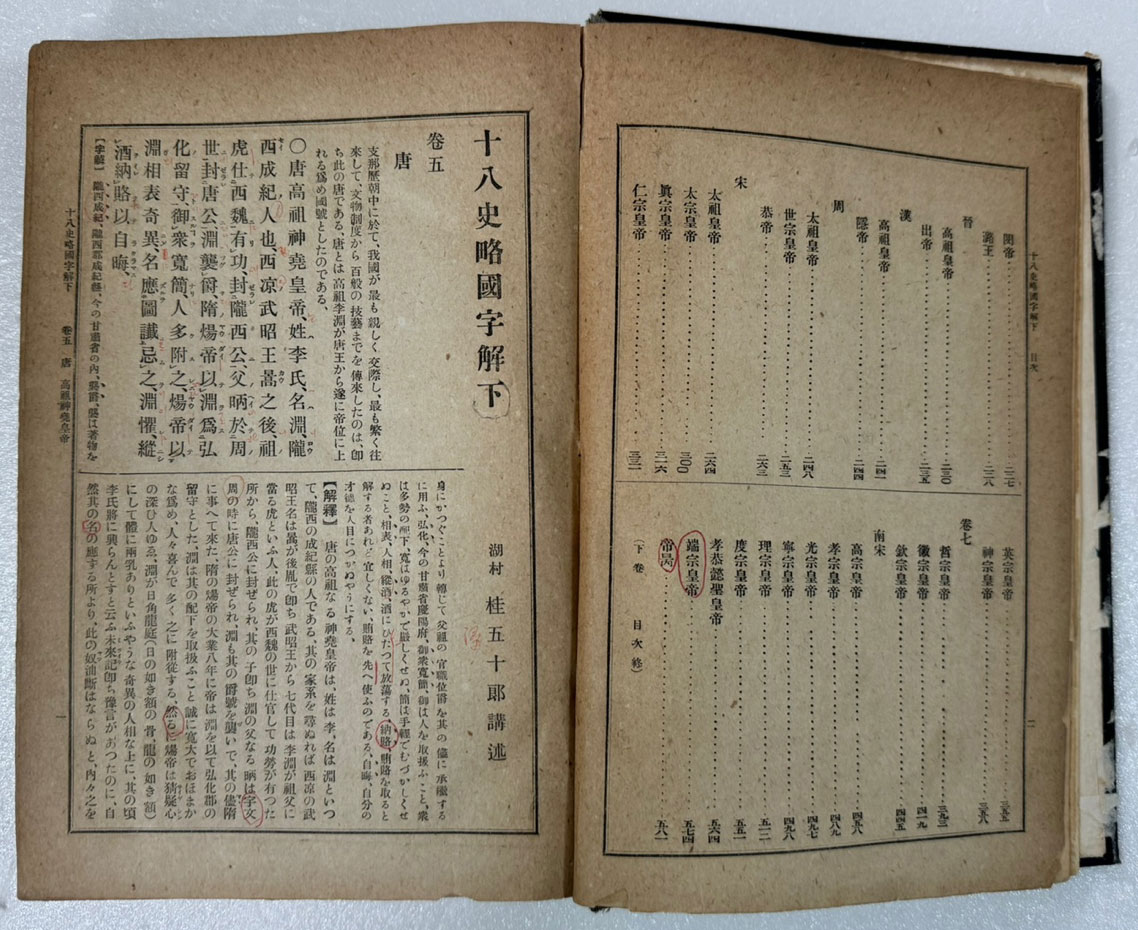 十八史略國字解下　目次
閔帝………二二七
潞王………二二八
晉
高祖皇帝………二三〇
出帝………二三五
漢
高祖皇帝………二四一
隱帝………二四四
周
太祖皇帝………二四八
世宗皇帝………二五三
恭帝………二六三
宋
太祖皇帝………二六四
太宗皇帝………三〇〇
眞宗皇帝………三一六
仁宗皇帝………三三一
英宗皇帝………三五五
神宗皇帝………三五八
卷七
哲宗皇帝………三九三
徽宗皇帝………四一九
欽宗皇帝………四四五
南宋
高宗皇帝………四五六
孝宗皇帝………四八九
光宗皇帝………四九七
寧宗皇帝………四九八
理宗皇帝………五一二
度宗皇帝………五五一
孝恭懿聖皇帝………五六四
端宗皇帝………五七四
帝昺………五八一
（下卷　目次終）
二
十八史略國字解下
湖村　桂五十郎講述
卷五
唐
支那歷朝中に於て、我國が最も親しく交際し、最も繁く往
來して、文物制度から百般の技藝までを傳來したのは、卽
ち此の唐である、唐とは高祖李淵が唐王から遂に帝位に上
れる爲め國號としたのである、
〇唐高祖神堯皇帝、姓李氏、名淵、隴
西成紀人也、西凉武昭王暠之後、祖
虎仕西魏有功、封隴西公、父昞於周
世封唐公、淵襲爵、隋煬帝以淵爲弘
化留守、御衆寬簡、人多附之、煬帝以
淵相表奇異、名應圖讖忌之、淵懼、縱
酒納賂以自晦、
【字義】　隴西成紀、隴西郡成紀縣、今の甘肅省の內、襲爵、襲は著物を
身にかつぐことより轉じて父祖の官職位爵を其の儘に承繼する
に用ふ、弘化、今の甘肅省慶陽府、御衆寬簡、御は人を取扱ふこと、衆
は多勢の配下、寬はゆるやかで嚴しくせぬ、簡は手輕でむづかしくせ
ぬこと、相表、人相、縱酒、酒にひたつて放蕩する、納賂、賄賂を取ると
解する者あれど宜しくない、賄賂を先へ使ふのである、自晦、自分の
才德を人目につかぬやうにする、
【解釋】　唐の高祖なる神堯皇帝は、姓は李、名は淵といつ
て、隴西の成紀縣の人である、其の家系を尋ぬれば西凉の武
昭王名は暠が後胤で卽ち武昭王から七代目は李淵が祖父に
當る虎といふ人、此の虎が西魏の世に仕官して功勞が有つた
所から、隴西公に封ぜられ、其の子卽ち淵の父なる昞は宇文
周の時に唐公に封ぜられ、淵も其の爵號を襲いで、其の儘隋
に事へて來た、隋の煬帝の大業八年に帝は淵を以て弘化郡の
留守とした、淵は其の配下を取扱ふこと誠に寬大でおほまか
な爲め、人々喜んで多く之に附從する、然るに煬帝は猜疑心
の深ひ人ゆゑ、淵が日角龍庭（日の如き額の骨龍の如き額）
にして體に兩乳ありといふやうな奇異の人相な上に、其の頃
李氏將に興らんとすと云ふ未來記卽ち豫言があつたのに、自
然其の名の應する所より、此の奴油斷はならぬと、內々之を
十八史略國字解下　卷五　唐　高祖神堯皇帝
一